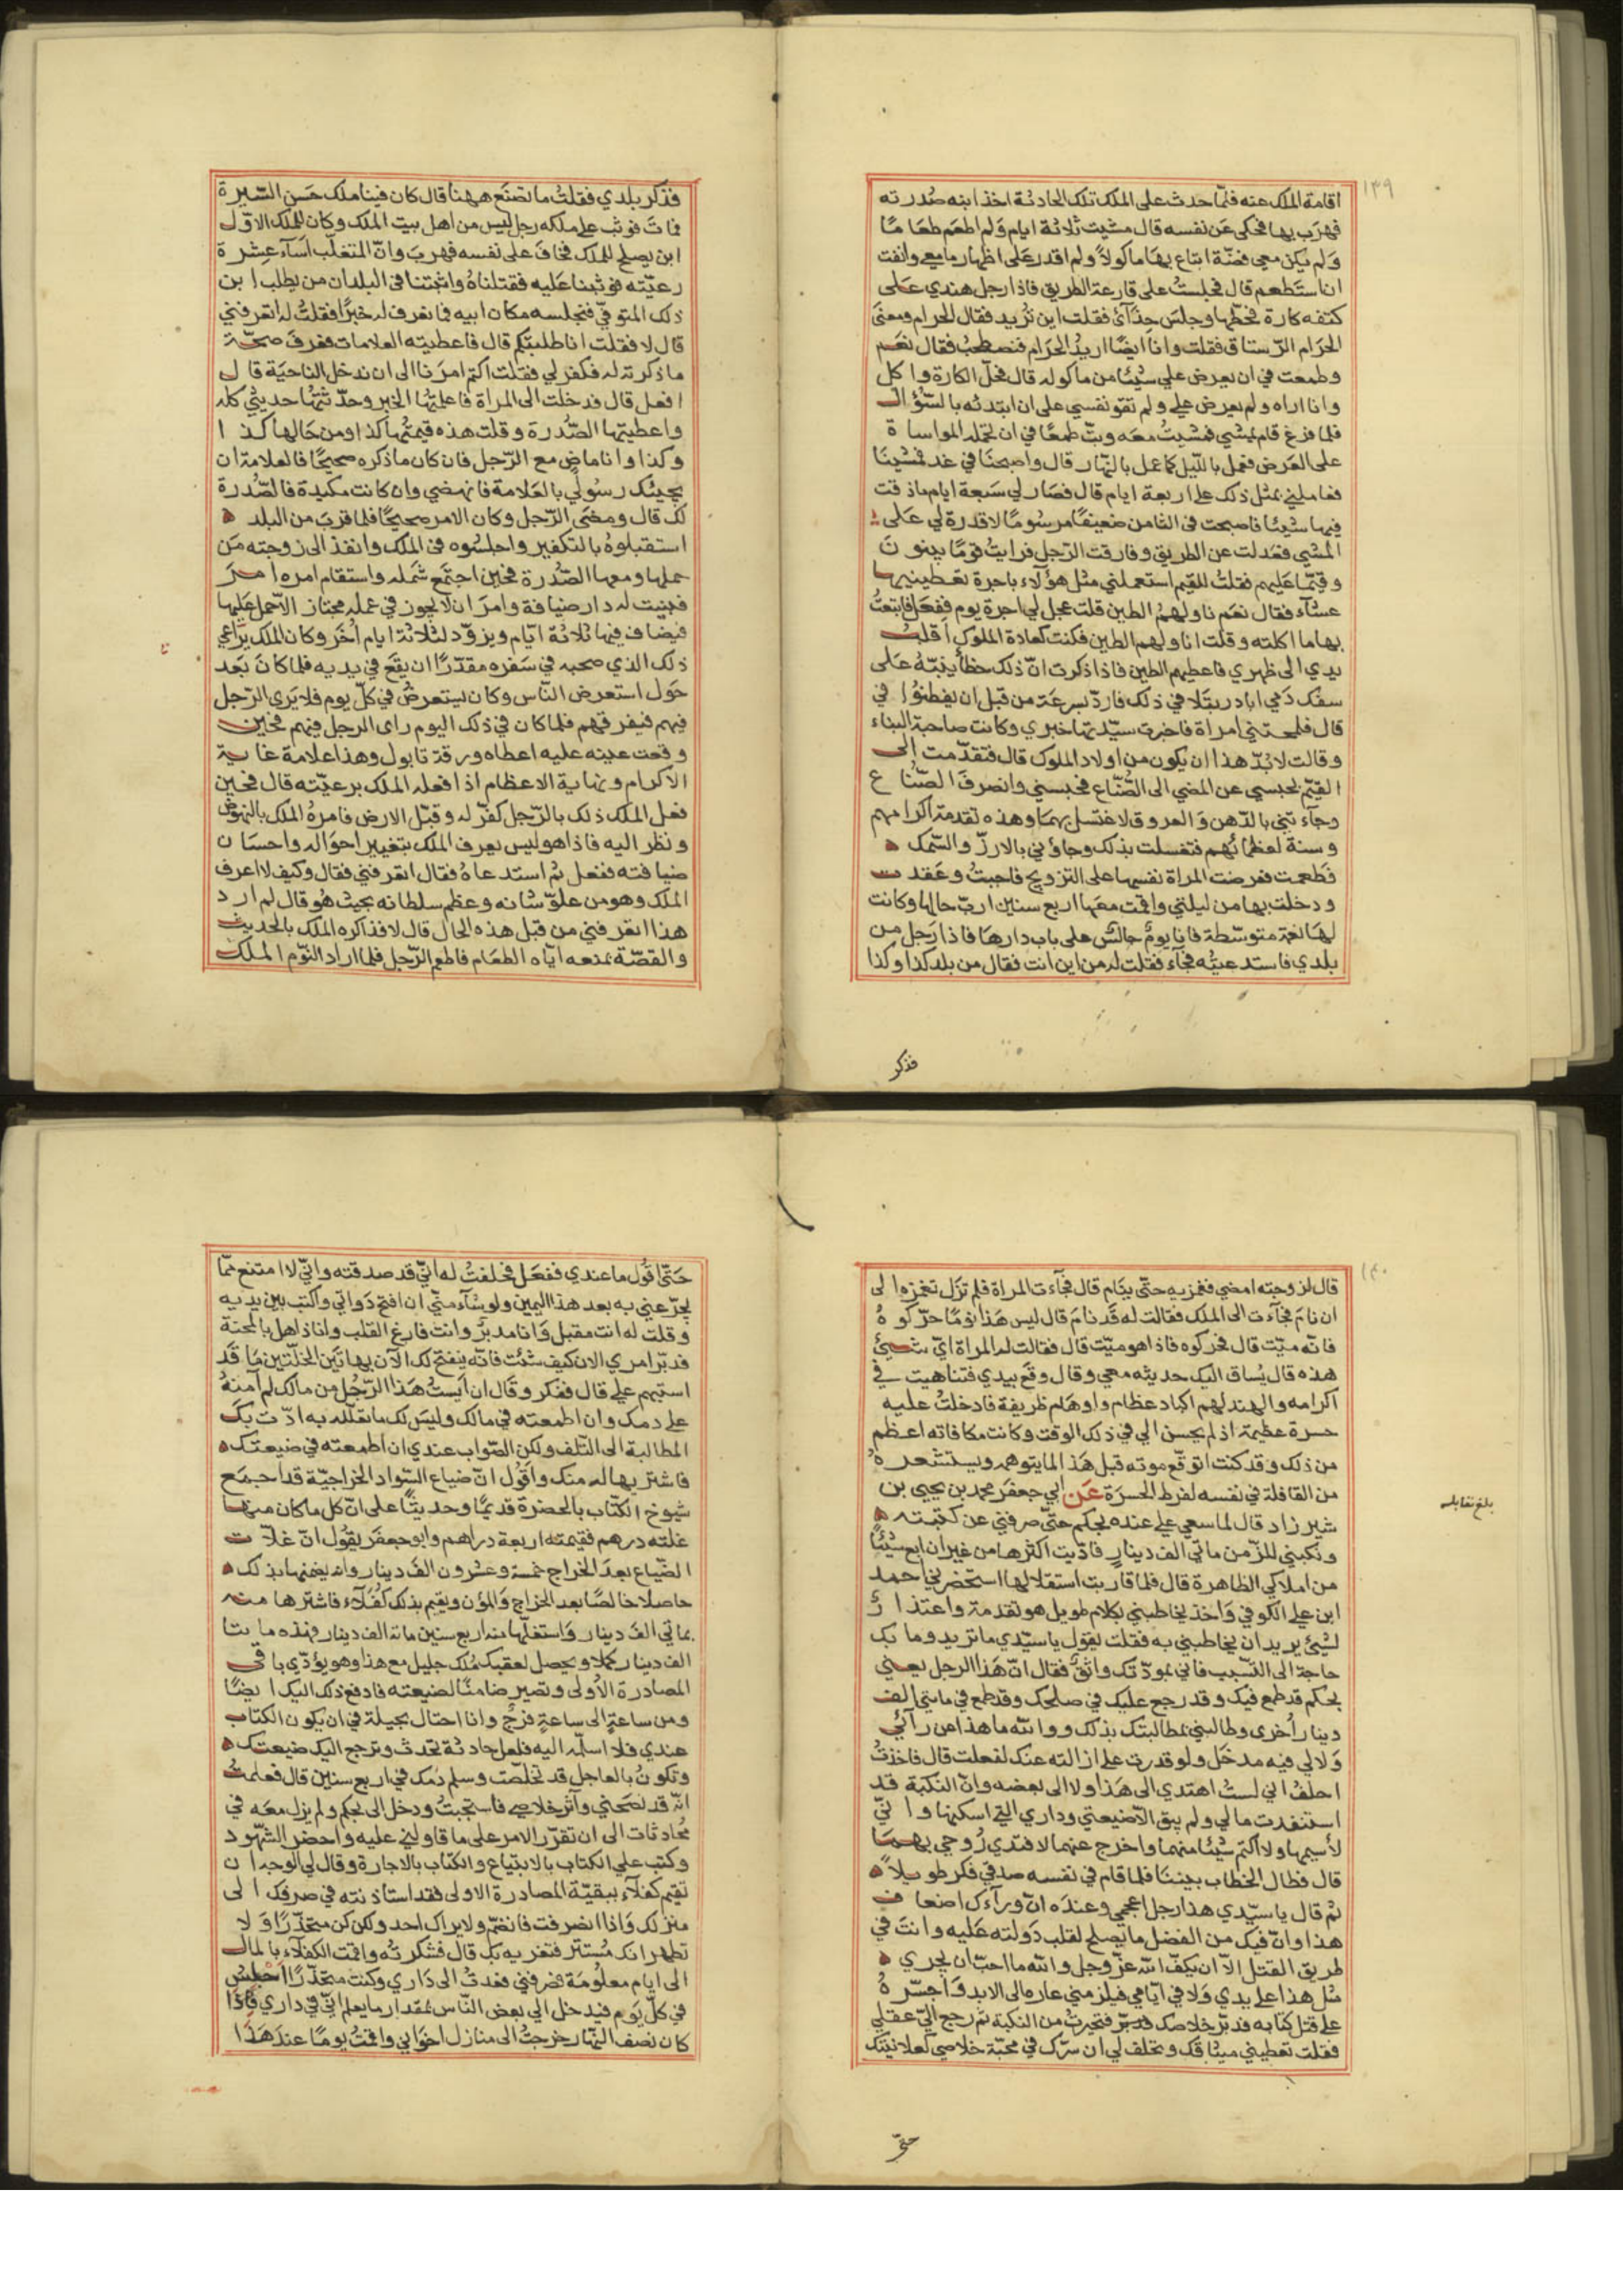 ١٣٩
اقامة الملك عنه فلمّا حدث على الملك تلك الحادثة اخذ ابنه صُدرته
فهرَب بها فحكى عَن نفسه قال مشيت ثلاثة ايام وَلم اطعَم طعَامًا
وَلم يكن معي فضّة ابتاع بهَا ماكولاً ولم اقدر عَلى اظهار ما معي وانفت
ان استَطعم قال فجلستُ على قارعة الطريق فاذا رجل هندي عَلى
كتفه كارة فحطّها وجلسَ حِذَآئ فقلت اين تُريد فقال الحرام ومعنَى
الحرَام الرّستاق فقلت وانا ايضًا اريدُ الحرَام فنصطحبُ فقال نعَم
وطمعت في ان يعرض علي شيئًا من ماكوله قال فحلّ الكارة واكل
وانا اراه ولم يعرض عليّ ولم تقو نفسي على ان ابتدئه بالسّؤال
فلما فرغ قام يمشي فمشيتُ معَه وبتّ طمعًا في ان تحمله المواساة
على العَرض فعمل بالليل كما عمل بالنهار قال واصبحنَا في غد فمشينَا
فعاملني بمثل ذلك على اربعة ايام قال فصَار لي سَبعة ايام ما ذقت
فيها شيئًا فاصبحت في الثامن ضعيفًا مرسُومًا لا قدرة لي عَلى
المشي فعَدلت عن الطريق وفارقت الرّجل فرايتُ قومًا يبنونَ
وقيّمًا عَليهم فقلتُ للقيّم استعملني مثل هؤلاء باجرة تعَطينيها
عشاء فقال نعَم ناولهمُ الطين قلت عجل لي اجرة يوم ففعَل فابتعتُ
بهَا ما اكلته وقلت اناولهم الطين فكنت كعادة الملوك اقلبُ
يدي الى ظهري فاعطيهم الطين فاذا ذكرت انّ ذلك خطأ ينبّهُ عَلى
سفك دَمي ابادر بتَلافي ذلك فاردّ بسرعَة من قبل ان يفطنُوا في
قال فلمحَتني امراة فاخبرت سيّدتها خبري وكانت صاحبة البناء
وقالت لابُدّ هذا ان يكون من اولاد الملوك قال فتقدّمت الى
القيّم بحبسي عن المضي الى الصُّنّاع فحبسني وانصرفَ الصّنّاع
وجآءتني بالدّهن وَالعروق لاغتسل بهمَا وهذه تقدمة اكرامهم
وسنة لعظمائهم فتغسلت بذلك وجاؤني بالارزّ والسّمك
فطعمت فعرضت المراة نفسها على التزويج فاجبتُ وعَقدت
ودخلت بها من ليلتي واقمت معَها اربع سنين اربّ حالها وكانت
لهَا نعَمة متوسّطة فانا يومٌ جالسٌ على باب دارهَا فاذا رَجل من
بلدي فاستدعيتُه فجآء فقلت له من اين انت فقال من بلد كذا وكذا
فذكر
فذكر بلدي فقلتُ ما تصنَع ههُنا قال كان فينا ملك حَسن السّيرة
فماتَ فوثبَ على ملكه رجل ليس من اهل بيت الملك وكان للملك الاوّل
ابن يصلح للملك فخافَ على نفسه فهربَ وانّ المتغلّب اسآء عِشرة
رعيّته فوثبنا عَليه فقتلناهُ وانبثثنا في البلدان من يطلب ابن
ذلك المتوفّي فنجلسه مكان ابيه فما نعرف له خبرًا فقلتُ له اتعرفني
قال لا فقلت انا طلبتكم قال فاعطيته العلامات فعرفَ صحّة
ما ذكرته له فكفر لي فقلت اكتم امرَنا الى ان ندخل الناحيَة قال
افعل قال فدخلت الى المراة فاعلمتُها الخبر وحدّثتهُا حديثي كله
واعطيتها الصُّدرة وقلت هذه قيمتُها كذا ومن حَالها كذا
وكذا وانا ماضٍ مع الرّجل فان كان ما ذكره صحيحًا فالعلامة ان
يجيئك رسُولي بالعَلامة فانهضي وان كانت مكيدة فالصّدرة
لك قال ومضَى الرّجل وكان الامر صحيحًا فلما قربَ من البلد
استقبلوهُ بالتكفير واجلسُوه في الملك وانفذ الى زوجته مَن
حملها ومعها الصُّدرة فحين اجتمَع شَمله واستقام امره امرَ
فبنيت له دار ضيافة وامرَ ان لا يجوز في عمله مجتاز الاّ حمل اليها
فيضاف فيها ثلاثة ايّام ويزوّد لثلاثة ايام اُخَر وكان الملك يُراعي
ذلك الذي صحبه في سَفره مقدّرًا ان يقَع في يديه فلما كانَ بَعد
حَول استعرض النّاس وكان يستعرضُ في كلّ يوم فلا يَرى الرّجل
فيهم فيفرقهم فلما كان في ذلك اليوم راى الرجل فيهم فحين
وقعت عينه عليه اعطاه ورقة تابول وهذا علامة غاية
الاكرام ونهاية الاعظام اذا فعله الملك برعيّته قال فحين
فعل الملك ذلك بالرّجل كفّر له وقبّل الارض فامرهُ الملك بالنهوض
ونظر اليه فاذا هو ليس يعرف الملك بتغيير احوَاله واحسَان
ضيافته ففعل ثم استدعاهُ فقال اتعرفني فقال وكيف لا اعرف
الملك وهو من علوّ شانه وعظم سلطانه بحيث هُو قال لم ارد
هذا اتعرفني من قبل هذه الحال قال لا فذاكره الملك بالحديث
والقصّة بمنعه ايّاه الطعَام فاطعِم الرّجل فلما اراد النّوم الملك
١٤٠
قال لزوجته امضي فغمزيه حتّى ينَام قال فجآءت المراة فلم تزَل تغمزه الى
ان نامَ فجآءت الى الملك فقالت له قَد نامَ قال ليس هَذا نومًا حرّكوهُ
فانّه ميّت قال فحركوه فاذا هو ميّت قال فقالت له المراة ايّ شيئ
هذه قال يُساق اليك حديثه معي وقال وقَع بيدي فتناهيت في
اكرامه والهند لهم اكباد عظام واوهَام ظريفة فادخلتُ عليه
حسرة عظيمة اذ لم يحسن الي في ذلك الوقت وكانت مكافاته اعظم
من ذلك وقد كنت اتوقّع موته قبل هَذا لما يتوهمه ويستشعرهُ
من القافلة في نفسه لفرط الحسرَة عَن ابي جعفَر محمد بن يحيى بن
شيرزاد قال لما سعي علي عند بجكم حتّى صرفني عن كتبته
ونكبني للزّمن مائي الف دينار فادّيت اكثرها من غير ان ابيع شيئًا
من املاكي الظاهرة قال فلما قاربت استقلالها استحضرني احمد
ابن علي الكوفي وَاخذ يخاطبني بكلام طويل هو تقدمة واعتذار
لشيئ يريد ان يخاطبني به فقلت ليقول يا سيّدي ما تريد وما بك
حاجة الى التّسبيب فاني بمودّتك واثقٌ فقال انّ هَذا الرجل يعني
بجكم قد طمع فيك وقد رجع عليك في صلحك وقد طمع في مائتي الف
دينار أخرى وطالبني بمطالبتك بذلك ووالله ما هذا عن رأيي
وَلا لي فيه مدخَل ولو قدرت على ازالته عنك لفعلت قال فاخذتُ
احلفُ اني لستُ اهتدي الى هَذا ولا الى بعضه وانّ النكبَة قد
استنفدت مالي ولم يبق الاّ ضيعتي وداري التي اسكنها وانّي
لاُسيّبها ولا اكتم شيئًا منهما واخرج عنهما لافتدي رُوحي بهمَا
قال فطال الخطاب بيننَا فلما قام في نفسه صدقي فكر طويلاً
ثم قال يا سيّدي هذا رجل اعجمي وعندَه انّ ورآءك اضعاف
هذا وانّ فيك من الفضل ما يصلح لقلب دَولته عَليه وانتَ في
طريق القتل الاّ ان يكفّ الله عزّ وجل والله ما احبّ ان يجري
مثل هذا على يدي وَلا في ايّامي فيلزمني عاره الى الابد وَاجسّرهُ
على قتل كتابه فدبّر خلاصك فتحيرتُ من النكبة ثم رجع اليّ عقلي
فقلت تعطيني ميثاقك وتحلف لي ان سرّك في محبّة خلاصي كعلانيتك
بلغ مقابلة
حتّى
حَتّى اقُول ما عندي ففعَل فحلفتُ له انّي قد صدقته وانّي لا امتنع ممّا
يجرّعني به بعد هذا اليمين ولو شآء منّي ان افتح دَواتي واكتب بين يديه
وقلت له انت مقبل وَانا مدبرٌ وانت فارغ القلب وانا ذاهل بالمحنة
فدبّر امري الان كيف شئت فانّه ينفتح لك الآن بهاتَين الخلّتين مَا قد
استبهم علي قال ففكر وقَال ان آيستُ هَذا الرّجُل من مالك لم آمنهُ
على دمك وان اطمعته في مالك وليسَ لك ما تعَلّله به ادّت بك
المطالبة الى التّلف ولكن الصّواب عندي ان اطمعته في ضيعتك
فاشتر بها له منك واقول انّ ضياع السّواد الخراجيّة قد اجمَع
شيوخ الكتّاب بالحضرة قديمًا وحديثًا على انّ كل ما كان منها
غلته درهم فقيمته اربعة دراهم وابو جعفَر يقول انّ غلاّت
الضّياع بعدَ الخراج خمسة وعشرون الفَ دينار وانه يضمنها بذلك
حاصلا خالصًا بعد الخراج وَالمؤن ويقيم بذلك كفَلآء فاشترها منه
بمائي الفَ دينار وَاستغلّها منه اربع سنين مائة الف دينار فهذه مائتا
الف دينار كملا ويحصل لعقبك مُلك جليل مع هذا وهو يؤدّي باقي
المصادرة الاُولى وتصير ضامنًا لضيعته فادفع ذلك اليك ايضًا
ومن ساعةٍ الى ساعةٍ فرجٌ وانا احتال بحيلة في ان يكون الكتاب
عندي فلا اسلّمه اليه فلعل حادثة تحدث وترجع اليك ضيعتك
وتكونُ بالعاجل قد تخلّصت وسلم دَمك في اربع سنين قال فعلمتُ
انّه قد نصَحني وآثر خلاصي فاستجبتُ ودخل الى بجكم ولم يزل معَه في
مُحادثات الى ان تقرّر الامر على ما قاولني عليه واحضر الشّهود
وكتب علي الكتاب بالابتياع والكتاب بالاجارة وقال لي الوجه ان
تقيم كفلآء ببقيّة المصادرة الاولى فقد استاذنته في صرفك الى
منزلك وَاذا انصرفت فانغمّ ولا يراك احد ولكن كن متحَذّرًا وَلا
تظهر انك مُستتر فتغريه بك قال فشكرتُه واقمت الكفلآء بالمال
الى ايام معلُومَة فصرفني فعدتُ الى دَاري وكنت متحَذّرًا اجلسُ
في كلّ يَوم فيدخل الي بعض النّاس بمقدار ما يعلم انّي في داري فاذا
كان نصف النّهار خرجتُ الى منازل اخوَاني واقمتُ يومًا عندَ هَذا